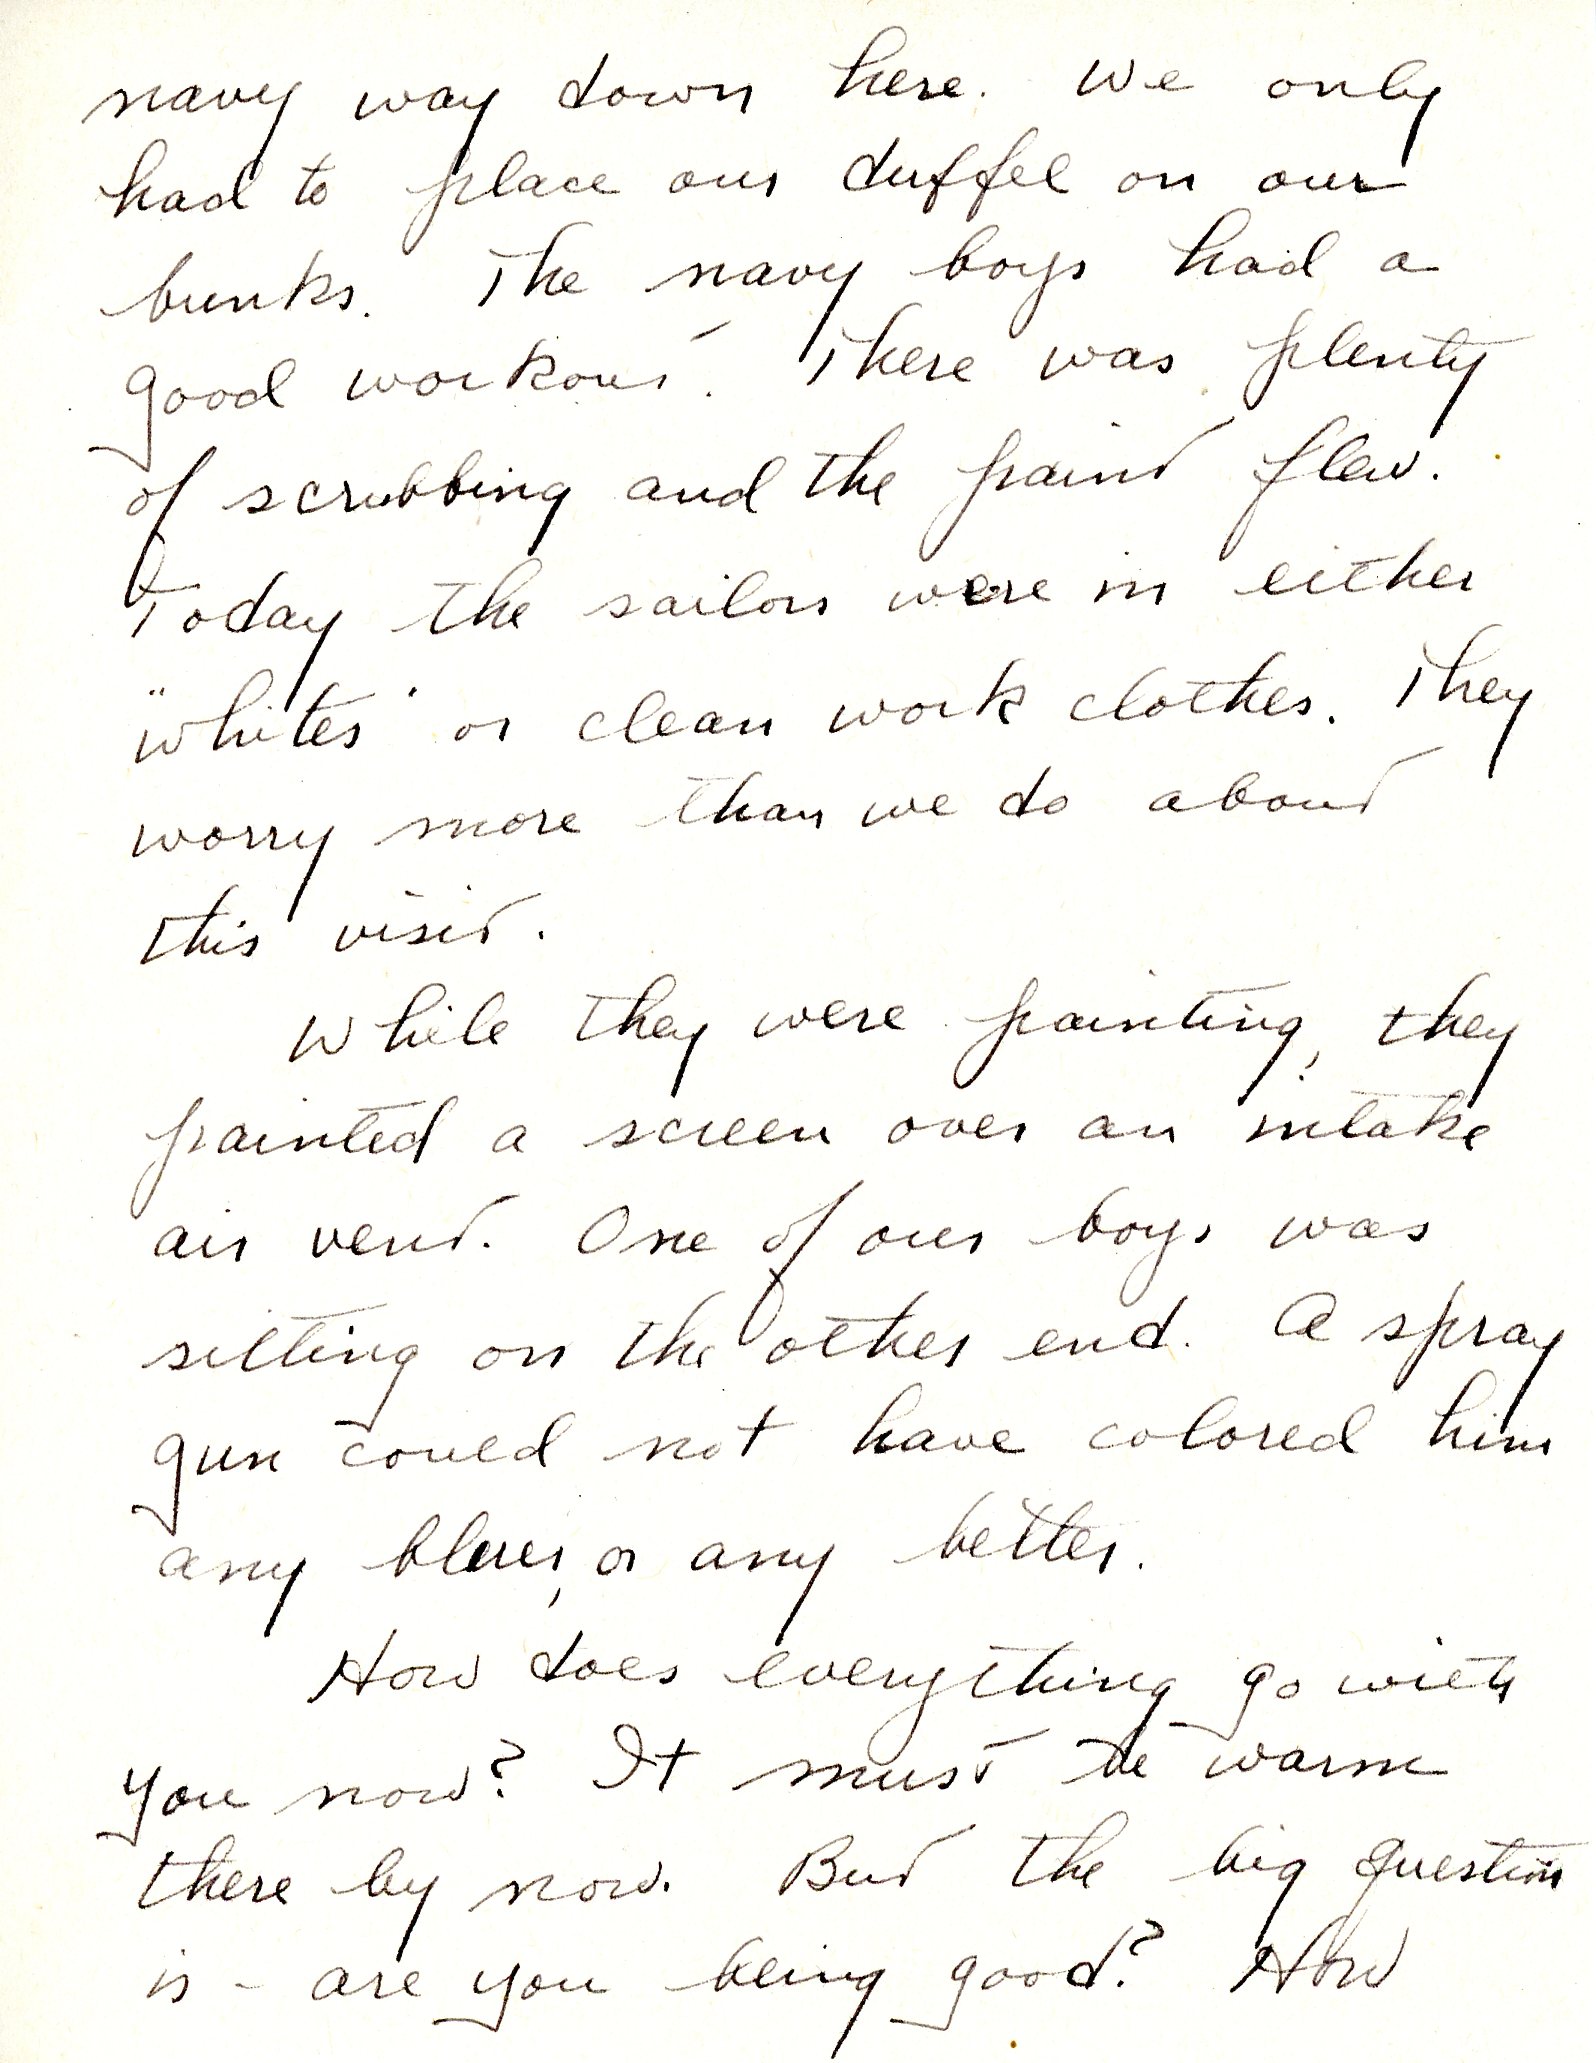 navy way down here. We only
had to place our duffel on our
bunks. The navy boys had a
good workout. There was plenty
of scrubbing and the paint flew.
Today the sailors were in either
"whites" or clean work clothes. They
worry more than we do about
this visit.
While they were painting, they
painted a screen over an intake
air vent. One of our boys was
sitting on the other end. A spray
gun could not have colored him
any bluer, or any better.
How does everything go with
you now? It must be warm
there by now. But the big question
is - are you being good? How